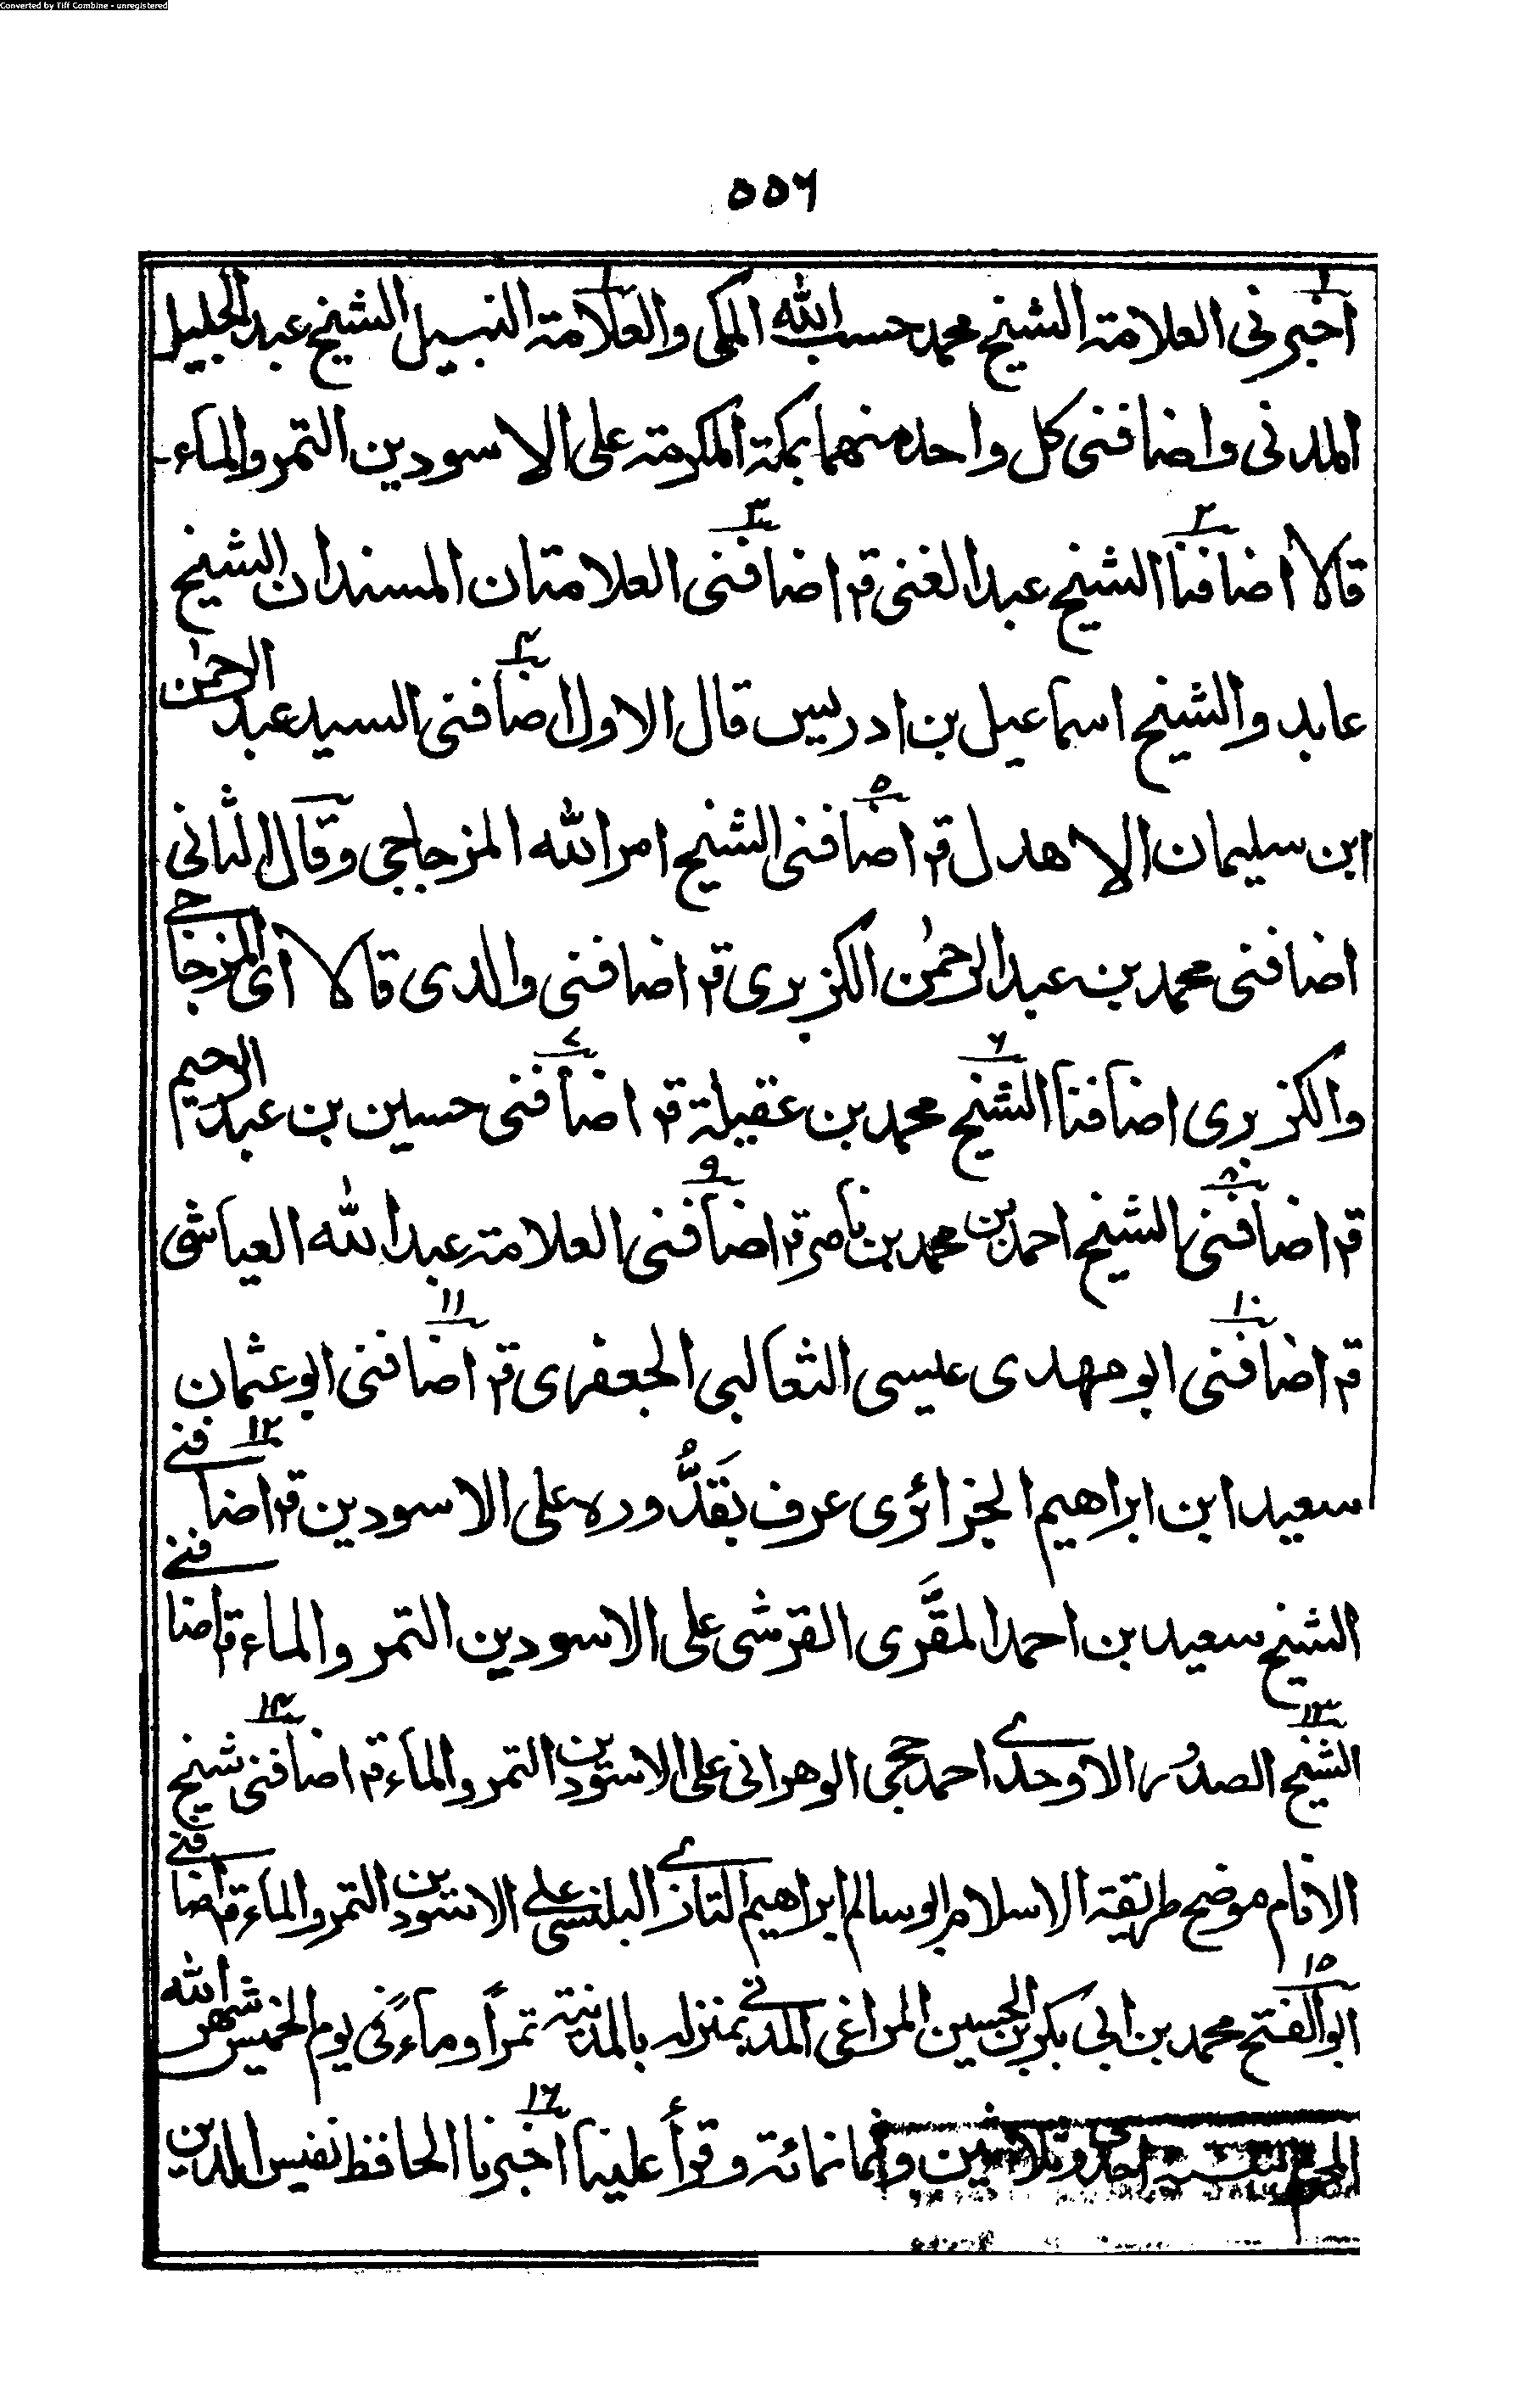 Converted by Tiff Combine - unregistered
٥٥٦
اخبرنى العلامة الشيخ محمد حسب الله المكى والعلامة النبيل الشيخ عبد الجليل
المدنى واضافنى كل واحد منهما بمكة المكرمة على الاسودين التمر والماء
قالا اضافنا الشيخ عبد الغنى قال اضافنى العلامتان المسندان الشيخ
عابد والشيخ اسماعيل بن ادريس قال الاول اضافنى السيد عبد الرحمٰن
ابن سليمان الاهدل قال اضافنى الشيخ امر الله المزجاجى وقال الثانى
اضافنى محمد بن عبد الرحمٰن الكزبرى قال اضافنى والدى قالا اى المزجاجى
والكزبرى اضافنا الشيخ محمد بن عقيلة قال اضافنى حسين بن عبد الرحيم
قال اضافنى الشيخ احمد بن محمد بن ناصر قال اضافنى العلامة عبد الله العياشى
قال اضافنى ابو مهدى عيسى الثعالبى الجعفرى قال اضافنى ابو عثمان
سعيد ابن ابراهيم الجزائرى عرف بقَدُّوره على الاسودين قال اضافنى
الشيخ سعيد بن احمد المقَّرى القرشى على الاسودين التمر والماء قال اضافنى
الشيخ الصدور الاوحدى احمد حجى الوهرانى على الاسودين التمر والماء قال اضافنى شيخ
الانام موضح طريقة الاسلام ابو سالم ابراهيم التازى البلنسى على الاسودين التمر والماء قال اضافنى
ابو الفتح محمد بن ابى بكر بن الحسين المراغى المدنى بمنزله بالمدينة تمرًا وماءً فى يوم الخميس شهر الله
المحرم احدى وثلاثين وثمانمائة وقرأ علينا اخبرنا الحافظ نفيس الدين